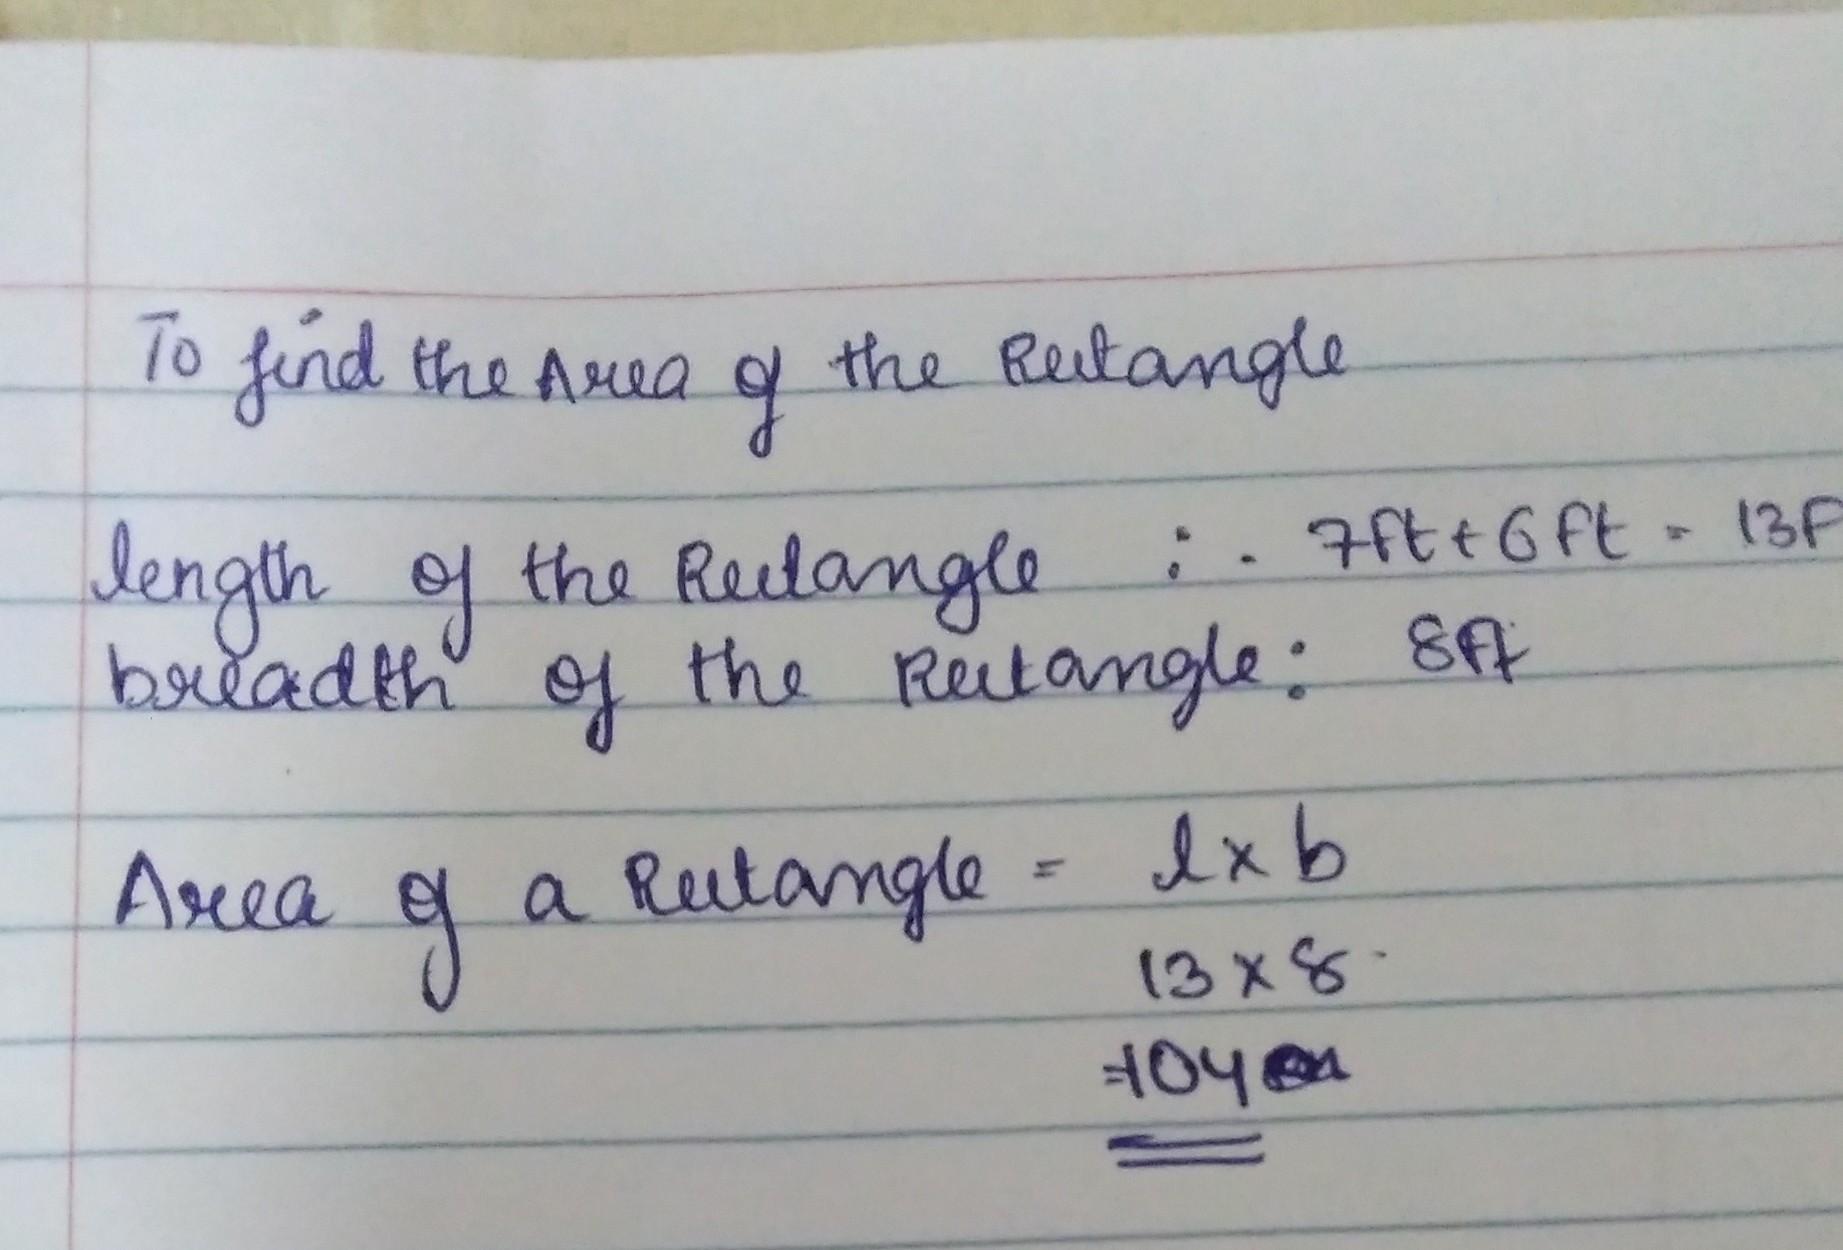 To find the Area of the Rectangle
length of the Rectangle : - 7ft + 6ft = 13F
breadth of the Rectangle : 8ft
Area of a Rectangle = l x b
13 x 8
=104